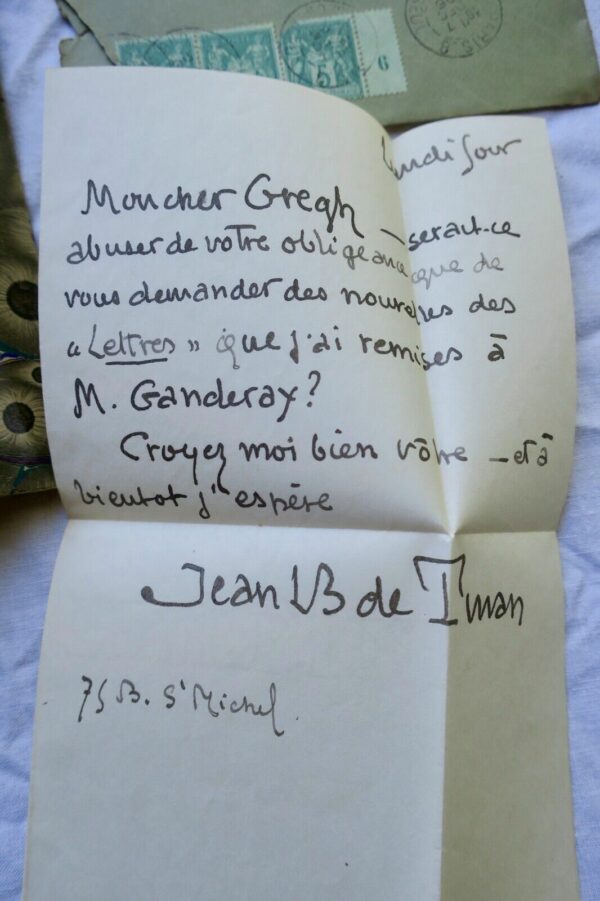 Lundi soir
Mon cher Gregh — serait-ce
abuser de votre obligeance que de
vous demander des nouvelles des
« Lettres » que j'ai remises à
M. Ganderax?
Croyez moi bien vôtre — et à
bientot j'espère
Jean B de Tinan
75 B. St Michel.
5
6
PARIS